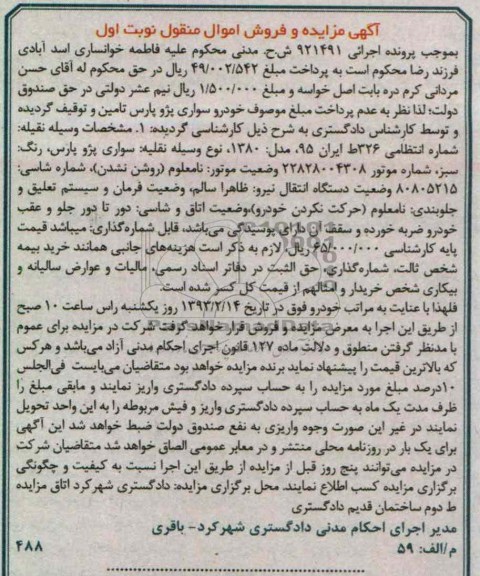 آگهی مزایده و فروش اموال منقول نوبت اول
بموجب پرونده اجرائی ۹۲۱۴۹۱ ش.ح. مدنی محکوم علیه فاطمه خوانساری اسد آبادی
فرزند رضا محکوم است به پرداخت مبلغ ۴۹/۰۰۲/۵۴۲ ریال در حق محکوم له آقای حسن
مردانی کرم دره بابت اصل خواسه و مبلغ ۱/۵۰۰/۰۰۰ ریال نیم عشر دولتی در حق صندوق
دولت؛ لذا نظر به عدم پرداخت مبلغ موصوف خودرو سواری پژو پارس تامین و توقیف گردیده
و توسط کارشناس دادگستری به شرح ذیل کارشناسی گردیده: ۱. مشخصات وسیله نقیله:
شماره انتظامی ۳۲۶ط ایران ۹۵، مدل: ۱۳۸۰، نوع وسیله نقلیه: سواری پژو پارس، رنگ:
سبز، شماره موتور ۲۲۸۲۸۰۰۴۳۰۸ وضعیت موتور: نامعلوم (روشن نشدن)، شماره شاسی:
۸۰۸۰۵۲۱۵ وضعیت دستگاه انتقال نیرو: ظاهرا سالم، وضعیت فرمان و سیستم تعلیق و
جلوبندی: نامعلوم (حرکت نکردن خودرو)،وضعیت اتاق و شاسی: دور تا دور جلو و عقب
خودرو ضربه خورده و سقف آن دارای پوسیدگی می‌باشد، قابل شماره‌گذاری: میباشد قیمت
پایه کارشناسی ۶۵/۰۰۰/۰۰۰ ریال، لازم به ذکر است هزینه‌های جانبی همانند خرید بیمه
شخص ثالث، شماره‌گذاری، حق الثبت در دفاتر اسناد رسمی، مالیات و عوارض سالیانه و
بیکاری شخص خریدار و امثالهم از قیمت کل کسر شده است.
فلهذا با عنایت به مراتب خودرو فوق در تاریخ ۱۳۹۳/۲/۱۴ روز یکشنبه راس ساعت ۱۰ صبح
از طریق این اجرا به معرض مزایده و فروش قرار خواهد گرفت شرکت در مزایده برای عموم
با مدنظر گرفتن منطوق و دلالت ماده ۱۲۷ قانون اجرای احکام مدنی آزاد می‌باشد و هرکس
که بالاترین قیمت را پیشنهاد نماید برنده مزایده خواهد بود متقاضیان می‌بایست فی‌الجلس
۱۰درصد مبلغ مورد مزایده را به حساب سپرده دادگستری واریز نمایند و مابقی مبلغ را
ظرف مدت یک ماه به حساب سپرده دادگستری واریز و فیش مربوطه را به این واحد تحویل
نمایند در غیر این صورت وجوه واریزی به نفع صندوق دولت ضبط خواهد شد این آگهی
برای یک بار در روزنامه محلی منتشر و در معابر عمومی الصاق خواهد شد متقاضیان شرکت
در مزایده می‌توانند پنج روز قبل از مزایده از طریق این اجرا نسبت به کیفیت و چگونگی
برگزاری مزایده کسب اطلاع نمایند. محل برگزاری مزایده: دادگستری شهرکرد اتاق مزایده
ط دوم ساختمان قدیم دادگستری
مدیر اجرای احکام مدنی دادگستری شهرکرد- باقری
م/الف: ۵۹ ۴۸۸